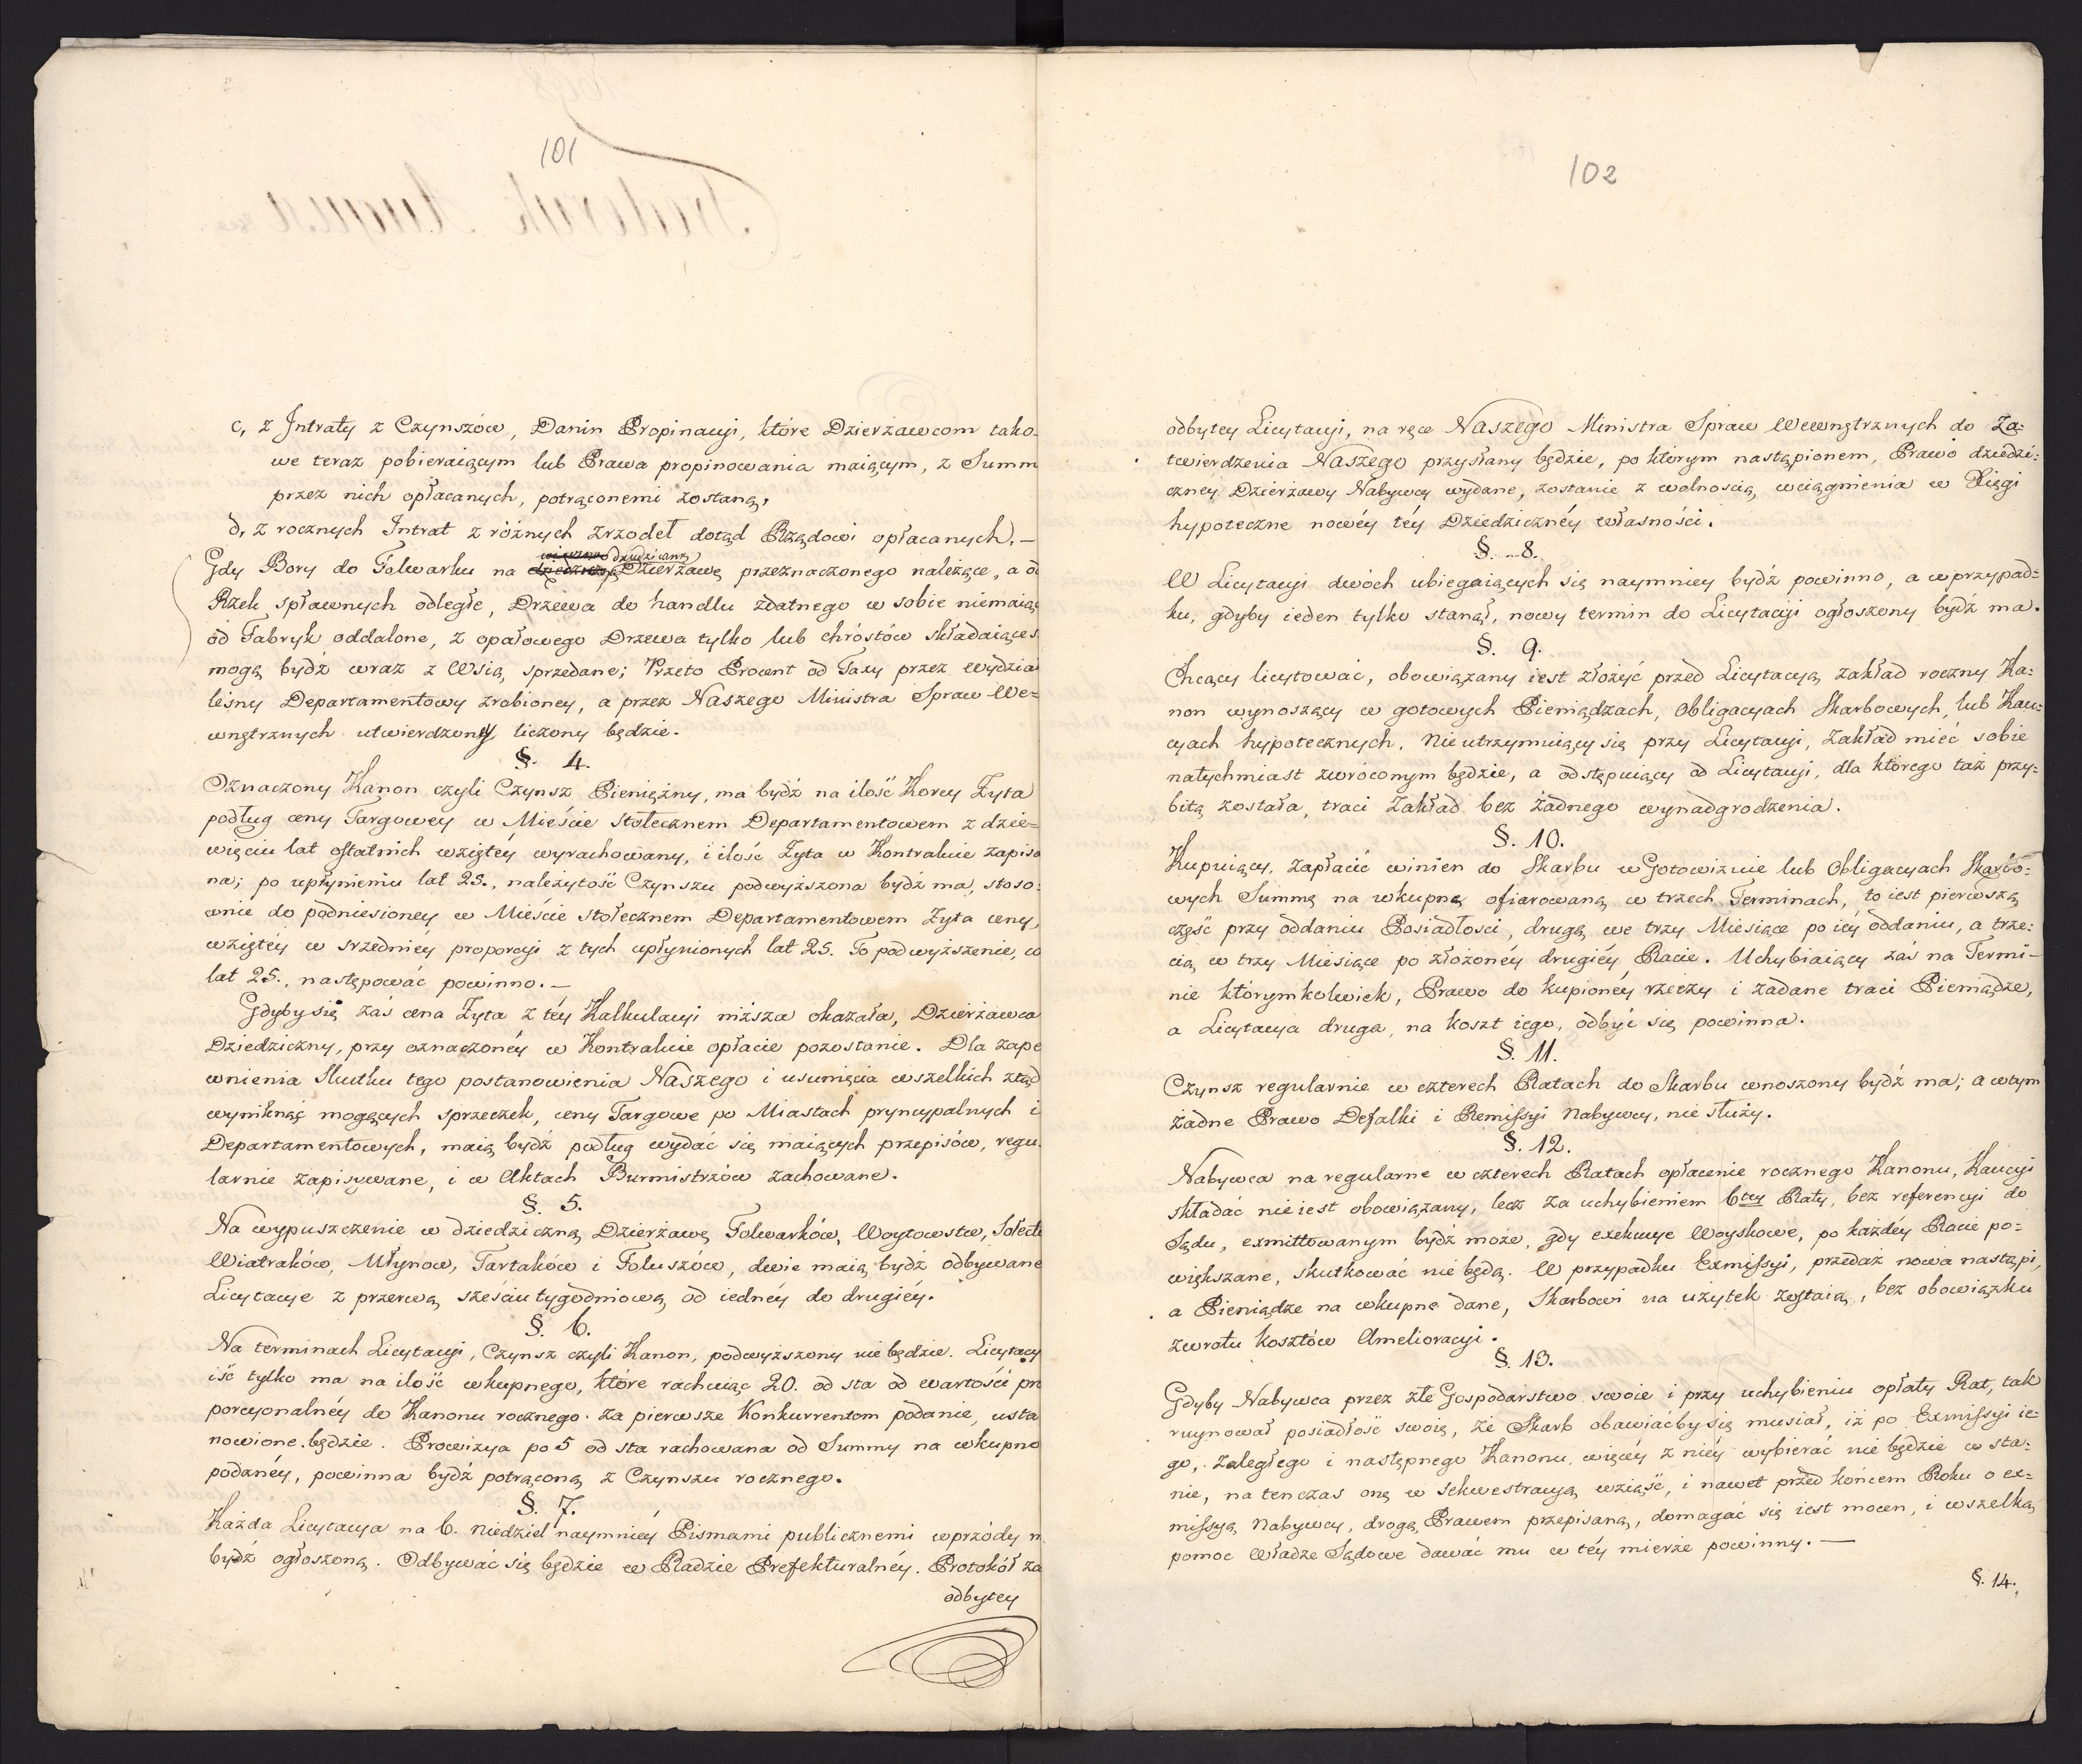 101
c, z Intraty z Czynszów, Danin Propinacyi, które Dzierżawcom tako-
we teraz pobieraiącym lub Prawa propinowania maiącym, z Summ
przez nich opłacanych, potrąconemi zostaną,
d, z rocznych Intrat z różnych zrzodeł dotąd Rządowi opłacanych. —
dziedziczną
Gdy Bory do Folwarku na Dzierżawę przeznaczonego należące, a od
Rzek spławnych odległe, Drzewa do handlu zdatnego w sobie niemaiąc
od Fabryk oddalone, z opałowego Drzewa tylko lub chróstów składaiące s
mogą bydź wraz z Wsią sprzedane; Przeto Procent od Taxy przez wydział
leśny Departamentowy zrobioney, a przez Naszego Ministra Spraw We=
wnętrznych utwierdzony liczony będzie.
§. 4.
Oznaczony Kanon czyli Czynsz Pieniężny, ma bydź na ilość Korcy Żyta
podług ceny Targowey w Mieście Stołecznem Departamentowem z dzie=
więciu lat ostatnich wziętéy wyrachowany, i ilość Żyta w Kontrakcie zapisa
na; po upłynieniu lat 25., należytość Czynszu podwyższona bydź ma, stoso=
wnie do podniesioney w Mieście stołecznem Departamentowem Żyta ceny,
wziętéy w srzedniey proporcyi z tych upłynionych lat 25. To podwyższenie, co
lat 25., następować powinno. —
Gdyby się zaś cena Żyta z téy Kalkulacyi niższa okazała, Dzierżawca
Dziedziczny, przy oznaczonéy w Kontrakcie opłacie pozostanie. Dla zape
wnienia Skutku tego postanowienia Naszego i usunięcia wszelkich ztąd
wyniknąć mogących sprzeczek, ceny Targowe po Miastach pryncypalnych i
Departamentowych, maią bydź podług wydać się maiących przepisów, regu-
larnie zapisywane, i w Aktach Burmistrzów zachowane.
§. 5.
Na wypuszczenie w dziedziczną Dzierżawę Folwarków, Woytowstw, Sołectw
Wiatraków, Młynow, Tartaków i Foluszów, dwie maią bydź odbywane
Licytacye z przerwą sześciutygodniową od iednéy do drugiéy.
§. 6.
Na terminach Licytacyi, Czynsz czyli Kanon, podwyższony nie będzie. Licytacy
iść tylko ma na ilość wkupnego, które rachuiąc 20. od sta od wartości pro
porcyonalnéy do Kanonu rocznego za pierwsze Konkurrentom podanie, usta
nowione będzie. Prowizya po 5 od sta rachowana od Summy na wkupno
podanéy, powinna bydź potrąconą z Czynszu rocznego.
§. 7.
Każda Licytacya na 6. Niedziel naymniéy Pismami publicznemi wprzódy m
bydź ogłoszoną. Odbywać się będzie w Radzie Prefekturalnéy. Protokół za
odbytey
102
odbytey Licytacyi, na ręce Naszego Ministra Spraw Wewnętrznych do Za=
twierdzenia Naszego przysłany będzie, po którym nastąpionem, Prawo dziedzi=
czney Dzierżawy Nabywcy wydane, zostanie z wolnością wciągnienia w Xięgi
hypoteczne nowéy téy Dziedzicznéy własności.
§. 8.
W Licytacyi dwóch ubiegaiących się naymniey bydź powinno, a w przypad=
ku, gdyby ieden tylko stanął, nowy termin do Licytacyi ogłoszony bydź ma.
§. 9.
Chcący licytować, obowiązany iest złożyć przed Licytacyą zakład roczny Ka=
non wynoszący w gotowych Pieniądzach, Obligacyach Skarbowych, lub Kau=
cyach hypotecznych. Nieutrzymuiący się przy Licytacyi, Zakład mieć sobie
natychmiast zwróconym będzie, a odstępuiący od Licytacyi, dla którego taż przy=
bitą została, traci Zakład bez żadnego wynadgrodzenia.
§. 10.
Kupuiący, Zapłacić winien do Skarbu w Gotowiznie lub Obligacyach Skarbo=
wych Summę na wkupne ofiarowaną w trzech Terminach, to iest pierwszą
część przy oddaniu Posiadłości, drugą we trzy Miesiące po iéy oddaniu, a trze=
cią w trzy Miesiące po złożonéy drugiéy Racie. Uchybiaiący zaś na Termi-
nie którymkolwiek, Prawo do kupionéy rzeczy i zadane traci Pieniądze,
a Licytacya druga, na koszt iego, odbyć się powinna.
§. 11.
Czynsz regularnie w czterech Ratach do Skarbu wnoszony bydź ma; a w tym
żadne Prawo Defalki i Remissyi Nabywcy, nie służy.
§. 12.
Nabywca na regularne w czterech Ratach opłacenie rocznego Kanonu, Kaucyi
składać nie iest obowiązany, lecz za uchybieniem 6tey Raty, bez referencyi do
Sądu, exmittowanym bydź może, gdy exekucye Woyskowe, po każdéy Racie po=
większane, skutkować nie będą. W przypadku Exmissyi, przedaż nowa nastąpi,
a Pieniądze na wkupne dane, Skarbowi na użytek zostaią, bez obowiązku
zwrotu kosztów Amelioracyi.
§. 13.
Gdyby Nabywca przez złe Gospodarstwo swoie i przy uchybieniu opłaty Rat, tak
ruynował posiadłość swoię, że Skarb obawiaćby się musiał, iż po Exmissyi ie=
go, zaległego i następnego Kanonu, więcéy z niéy wybierać nie będzie w sta=
nie, na tenczas onę w sekwestracyą wziąść, i nawet przed końcem Roku o ex=
missyą Nabywcy, drogą Prawem przepisaną, domagać się iest mocen, i wszelką
pomoc Władze Sądowe dawać mu w téy mierze powinny. —
§. 14.